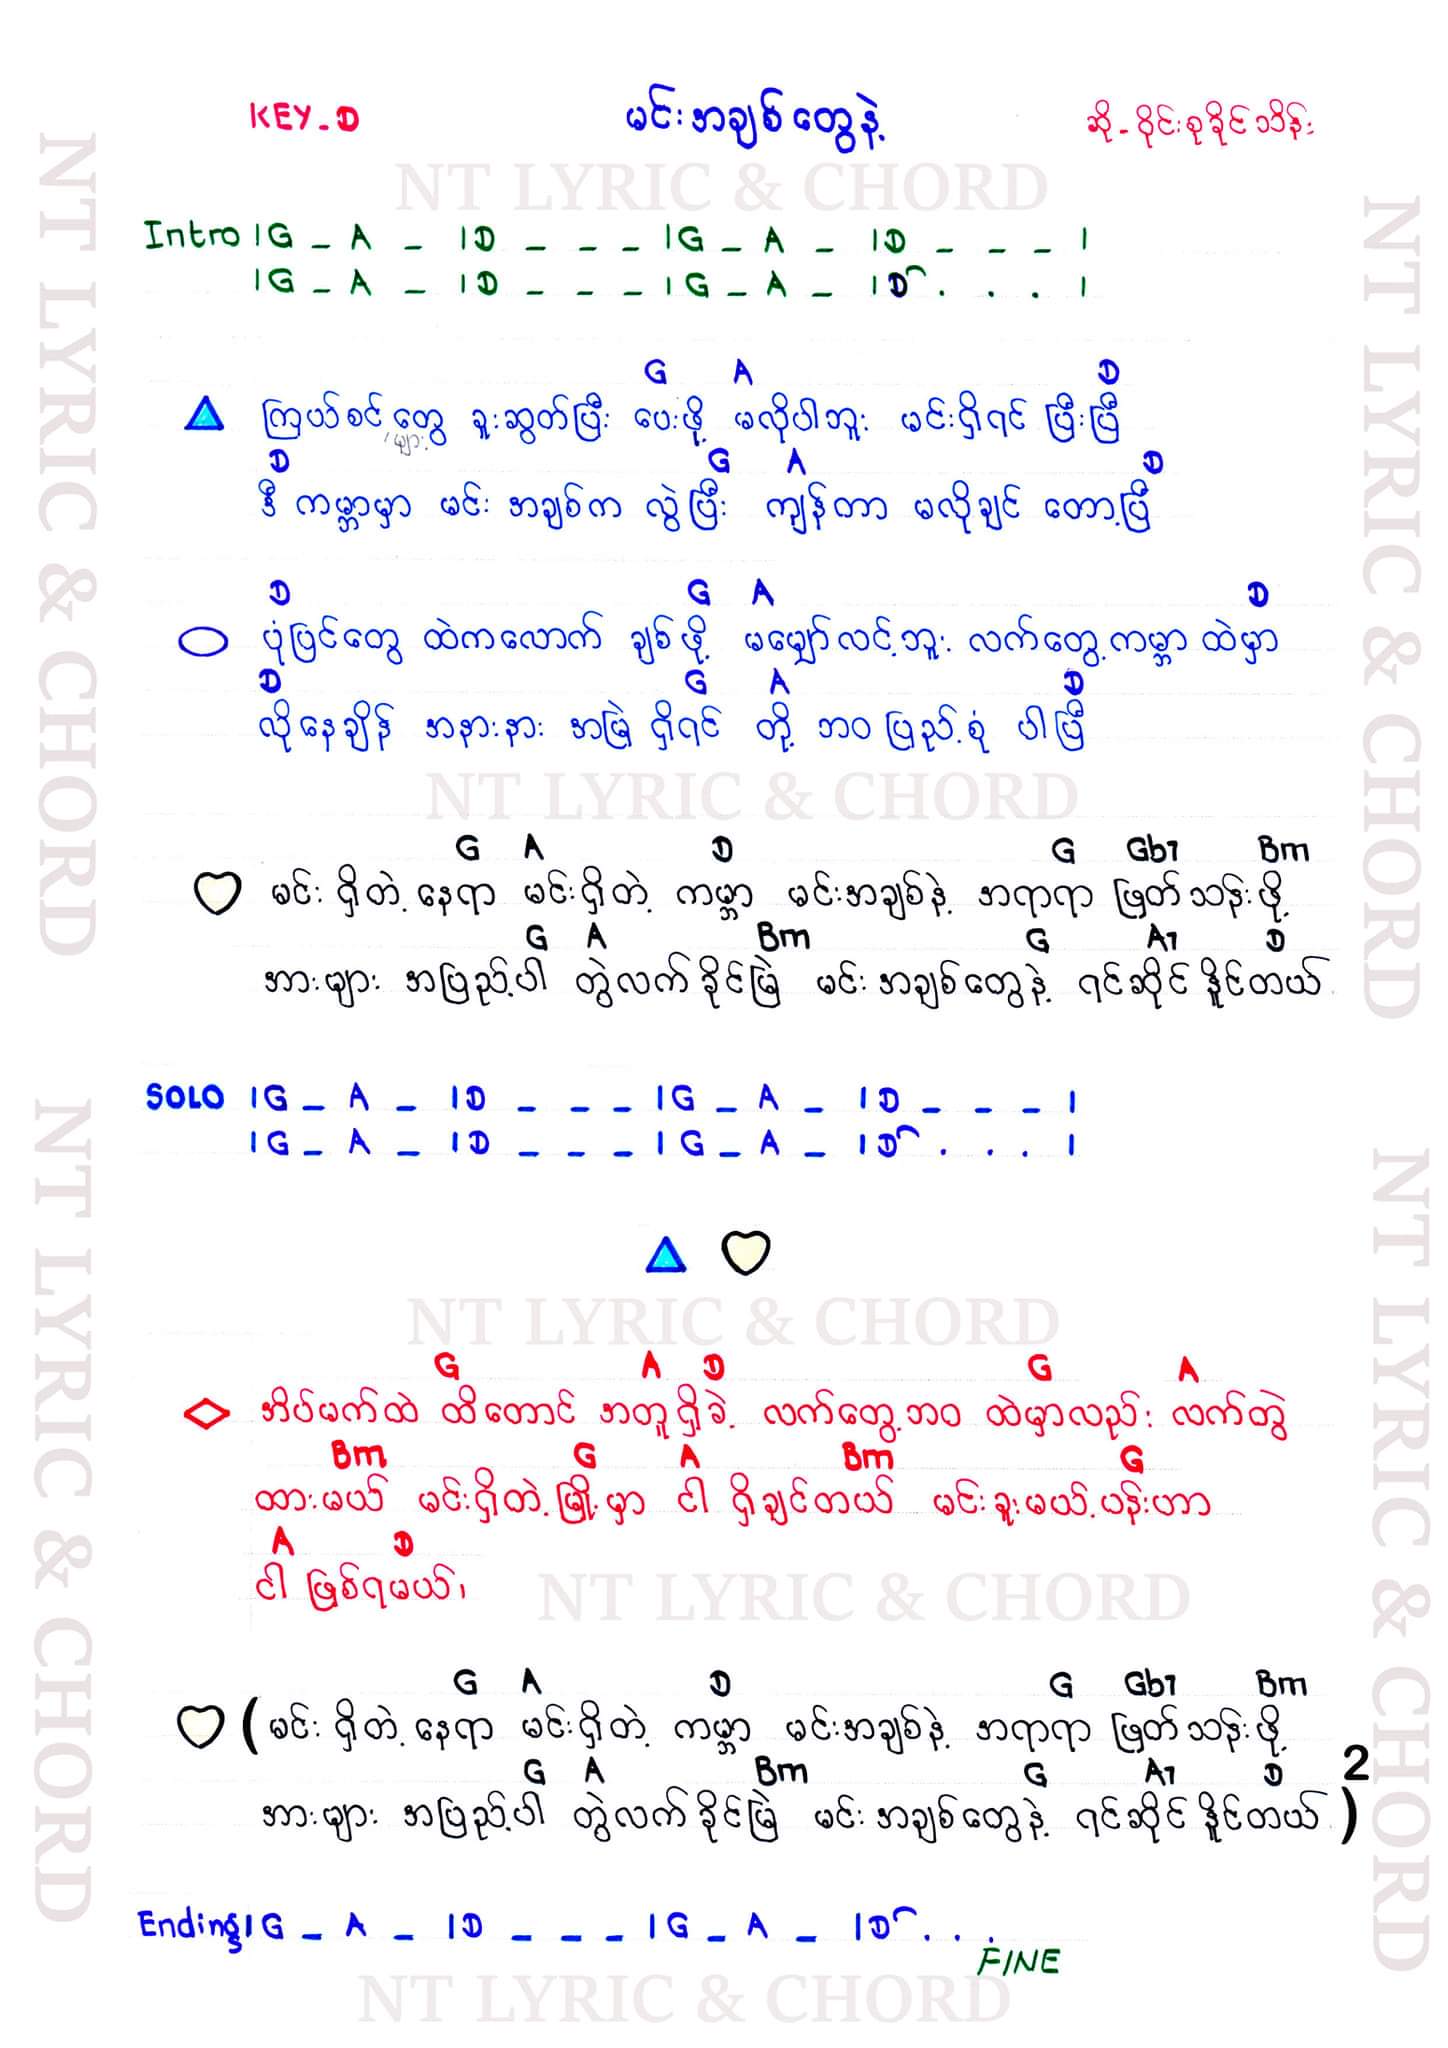 KEY-D မင်းအချစ်တွေနဲ့ ဆို-ဝိုင်းစုခိုင်သိန်း
NT LYRIC & CHORD
Intro |G - A - |D - - - |G - A - |D - - - |
|G - A - |D - - - |G - A - |D . . . |
G A D
ကြယ်စင်တွေ ခူးဆွတ်ပြီး ပေးဖို့ မလိုပါဘူး မင်းရှိရင် ပြီးပြီ
များ
D G A D
ဒီ ကမ္ဘာမှာ မင်း အချစ်က လွဲပြီး ကျန်တာ မလိုချင် တော့ပြီ
D G A D
ပုံပြင်တွေ ထဲကလောက် ချစ်ဖို့ မမျှော်လင့်ဘူး လက်တွေ့ကမ္ဘာ ထဲမှာ
D G A D
လိုနေချိန် အနားနား အမြဲ ရှိရင် တို့ ဘဝ ပြည့်စုံ ပါပြီ
NT LYRIC & CHORD
G A D G Gb7 Bm
မင်း ရှိတဲ့နေရာ မင်းရှိတဲ့ ကမ္ဘာ မင်းအချစ်နဲ့ အရာရာ ဖြတ်သန်းဖို့
G A Bm G A7 D
အားများ အပြည့်ပါ တွဲလက်ခိုင်မြဲ မင်းအချစ်တွေနဲ့ ရင်ဆိုင်နိုင်တယ်
SOLO |G - A - |D - - - |G - A - |D - - - |
|G - A - |D - - - |G - A - |D . . . |
NT LYRIC & CHORD
G A D G A
အိပ်မက်ထဲ ထိတောင် အတူရှိခဲ့ လက်တွေ့ဘဝ ထဲမှာလည်း လက်တွဲ
Bm G A Bm G
ထားမယ် မင်းရှိတဲ့မြို့မှာ ငါ ရှိချင်တယ် မင်းခူးမယ့်ပန်းဟာ
A D
ငါ ဖြစ်ရမယ်၊
NT LYRIC & CHORD
G A D G Gb7 Bm
(မင်း ရှိတဲ့နေရာ မင်းရှိတဲ့ ကမ္ဘာ မင်းအချစ်နဲ့ အရာရာ ဖြတ်သန်းဖို့
G A Bm G A7 D 2
အားများ အပြည့်ပါ တွဲလက်ခိုင်မြဲ မင်းအချစ်တွေနဲ့ ရင်ဆိုင်နိုင်တယ်)
Ending |G - A - |D - - - |G - A - |D . . .
FINE
NT LYRIC & CHORD
NT LYRIC & CHORD
NT LYRIC & CHORD
NT LYRIC & CHORD
NT LYRIC & CHORD